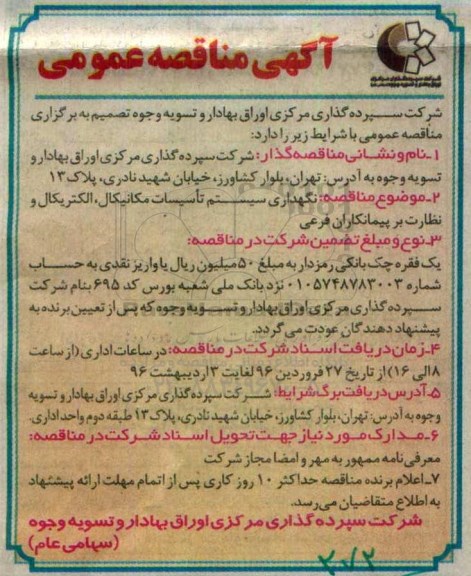 آگهی مناقصه عمومی
شرکت سپرده‌گذاری مرکزی اوراق بهادار و تسویه وجوه تصمیم به برگزاری
مناقصه عمومی با شرایط زیر را دارد:
۱ـ نام و نشانی مناقصه‌گذار: شرکت سپرده‌گذاری مرکزی اوراق بهادار و
تسویه وجوه به آدرس: تهران، بلوار کشاورز، خیابان شهید نادری، پلاک ۱۳
۲ـ موضوع مناقصه: نگهداری سیستم تأسیسات مکانیکال، الکتریکال و
نظارت بر پیمانکاران فرعی
۳ـ نوع و مبلغ تضمین شرکت در مناقصه:
یک فقره چک بانکی رمزدار به مبلغ ۵۰ میلیون ریال یا واریز نقدی به حساب
شماره ۰۱۰۵۷۴۸۷۸۳۰۰۳ نزد بانک ملی شعبه بورس کد ۶۹۵ بنام شرکت
سپرده‌گذاری مرکزی اوراق بهادار و تسویه وجوه که پس از تعیین برنده به
پیشنهاد دهندگان عودت می گردد.
۴ـ زمان دریافت اسناد شرکت در مناقصه: در ساعات اداری (از ساعت
۸ الی ۱۶) از تاریخ ۲۷ فروردین ۹۶ لغایت ۳ اردیبهشت ۹۶
۵ـ آدرس دریافت برگ شرایط: شرکت سپرده‌گذاری مرکزی اوراق بهادار و تسویه
وجوه به آدرس: تهران، بلوار کشاورز، خیابان شهید نادری، پلاک ۱۳ طبقه دوم واحد اداری.
۶ـ مدارک مورد نیاز جهت تحویل اسناد شرکت در مناقصه:
معرفی نامه ممهور به مهر و امضا مجاز شرکت
۷ـ اعلام برنده مناقصه حداکثر ۱۰ روز کاری پس از اتمام مهلت ارائه پیشنهاد
به اطلاع متقاضیان می‌رسد.
شرکت سپرده گذاری مرکزی اوراق بهادار و تسویه وجوه
(سهامی عام)
۳۷۲